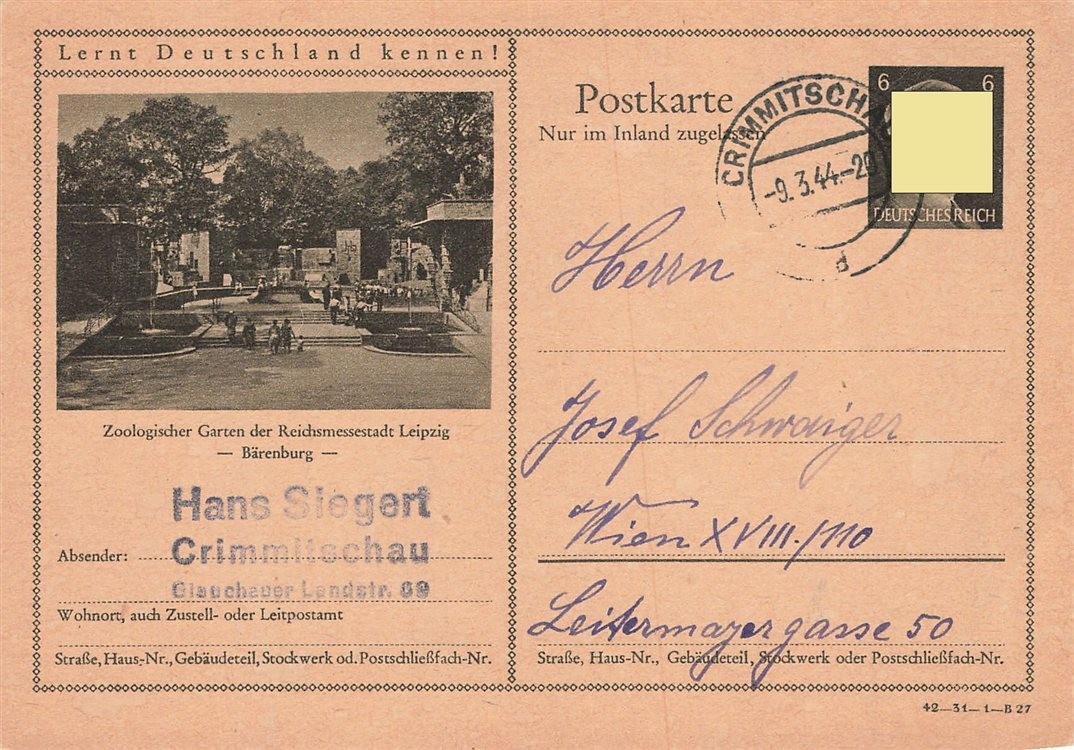 Lernt Deutschland kennen!
Zoologischer Garten der Reichsmessestadt Leipzig
— Bärenburg —
Hans Siegert
Absender: Crimmitschau
Glauchauer Landstr. 89
Wohnort, auch Zustell- oder Leitpostamt
Straße, Haus-Nr., Gebäudeteil, Stockwerk od. Postschließfach-Nr.
Postkarte
Nur im Inland zugelassen
6 6
DEUTSCHES REICH
CRIMMITSCHA
-9.3.44.-20
d
Herrn
Josef Schwaiger
Wien XVIII./110
Leitermayergasse 50
Straße, Haus-Nr., Gebäudeteil, Stockwerk oder Postschließfach-Nr.
42—31—1—B 27